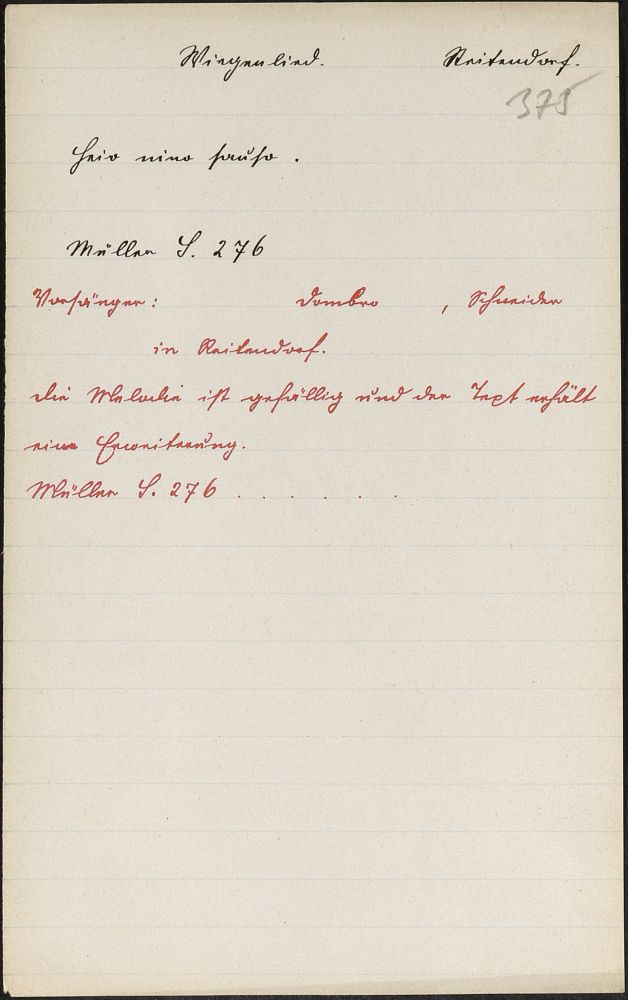 Wiegenlied. Reitendorf.
375
Heio nino sauso.
Müller S. 276
Vorsänger: Dombro, Schneider
in Reitendorf.
Die Melodie ist gefällig und der Text erhält
eine Erweiterung.
Müller S. 276 . . . . . .